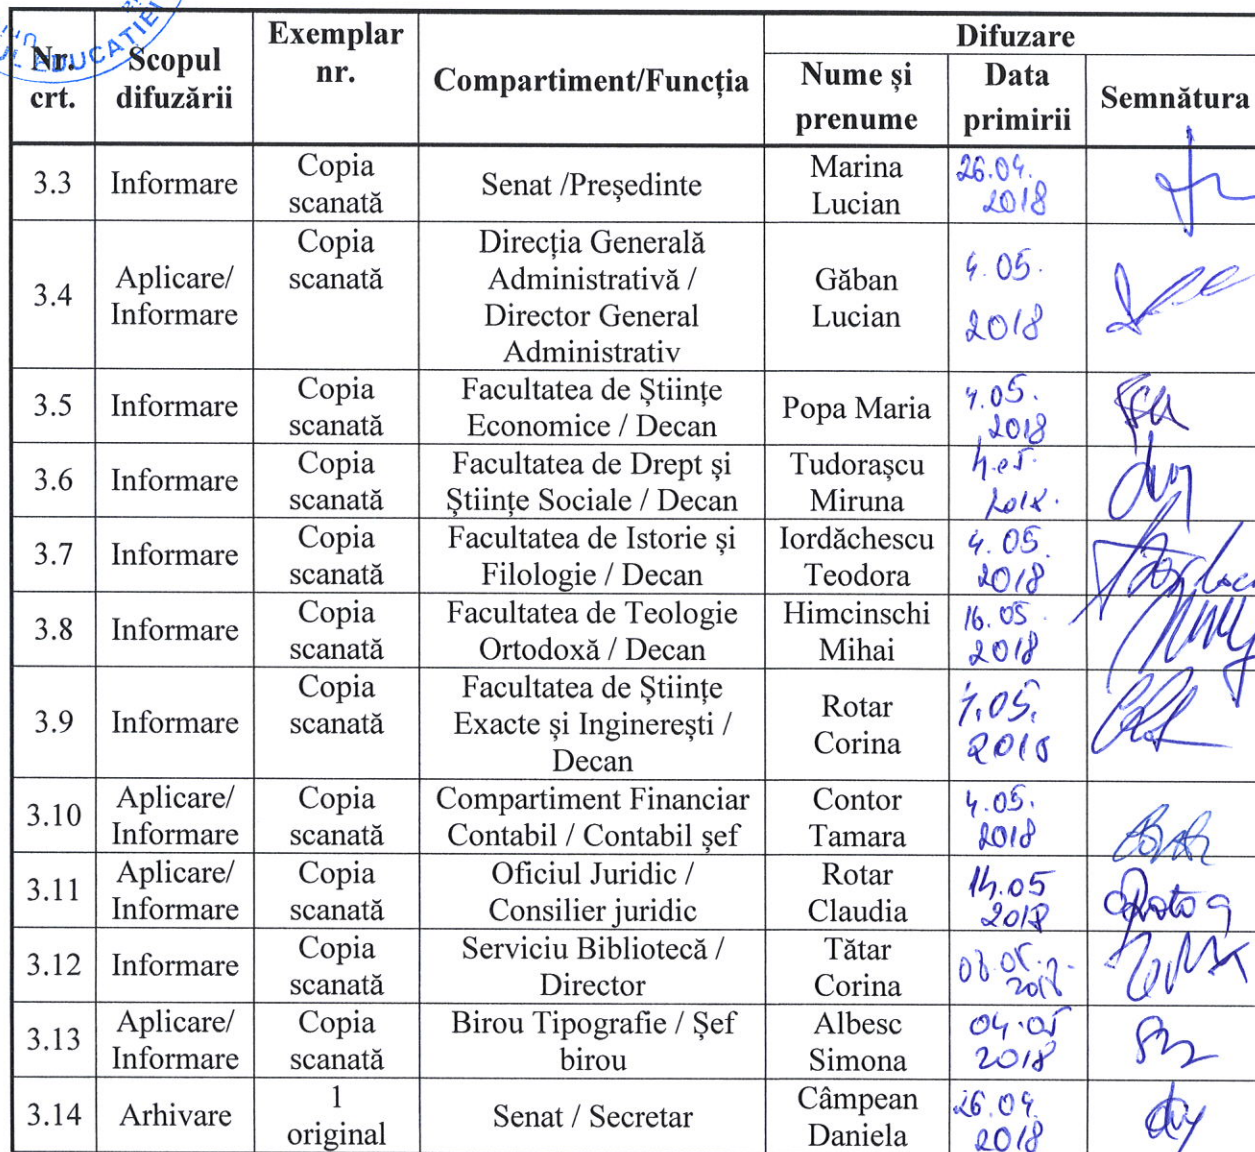 EDUCAȚIEI
Nr. crt. Scopul difuzării Exemplar nr. Compartiment/Funcția Difuzare
Nume și prenume Data primirii Semnătura
3.3 Informare Copia scanată Senat /Președinte Marina Lucian 26.04.2018
3.4 Aplicare/ Informare Copia scanată Direcția Generală Administrativă / Director General Administrativ Găban Lucian 4.05.2018
3.5 Informare Copia scanată Facultatea de Științe Economice / Decan Popa Maria 4.05.2018
3.6 Informare Copia scanată Facultatea de Drept și Științe Sociale / Decan Tudorașcu Miruna 4.05.2018.
3.7 Informare Copia scanată Facultatea de Istorie și Filologie / Decan Iordăchescu Teodora 4.05.2018
3.8 Informare Copia scanată Facultatea de Teologie Ortodoxă / Decan Himcinschi Mihai 16.05.2018
3.9 Informare Copia scanată Facultatea de Științe Exacte și Inginerești / Decan Rotar Corina
3.10 Aplicare/ Informare Copia scanată Compartiment Financiar Contabil / Contabil șef Contor Tamara 4.05.2018
3.11 Aplicare/ Informare Copia scanată Oficiul Juridic / Consilier juridic Rotar Claudia 14.05 2018
3.12 Informare Copia scanată Serviciu Bibliotecă / Director Tătar Corina
3.13 Aplicare/ Informare Copia scanată Birou Tipografie / Șef birou Albesc Simona 04.05 2018
3.14 Arhivare 1 original Senat / Secretar Câmpean Daniela 26.04.2018